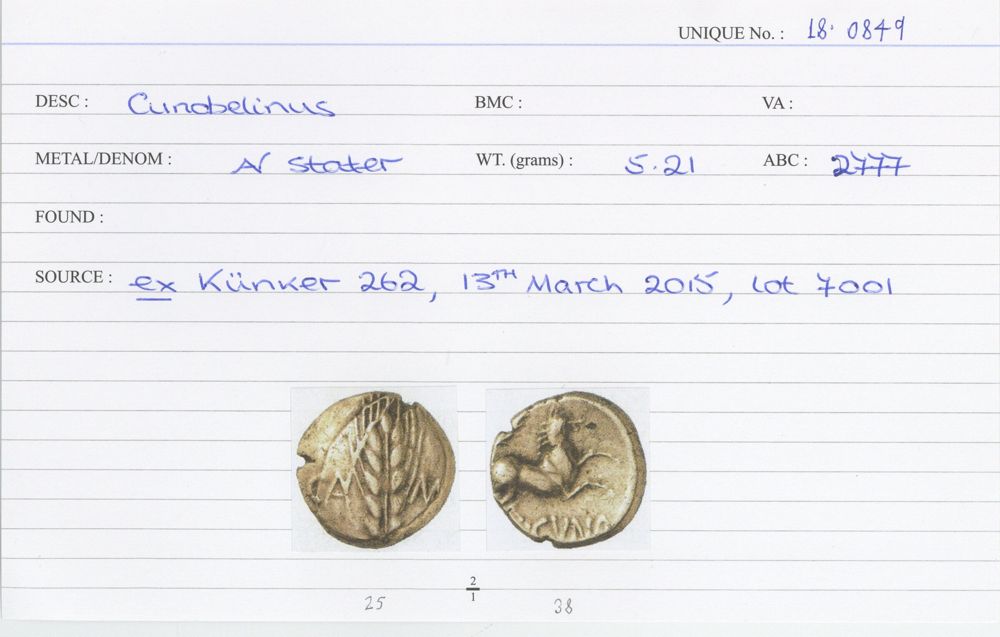 UNIQUE No. : 18. 0849
DESC : Cunobelinus BMC : VA :
METAL/DENOM : AV Stater WT. (grams) : 5.21 ABC : 2777
FOUND :
SOURCE : ex Künker 262, 13TH March 2015, lot 7001
CA M
CVNO
2
1
25 38